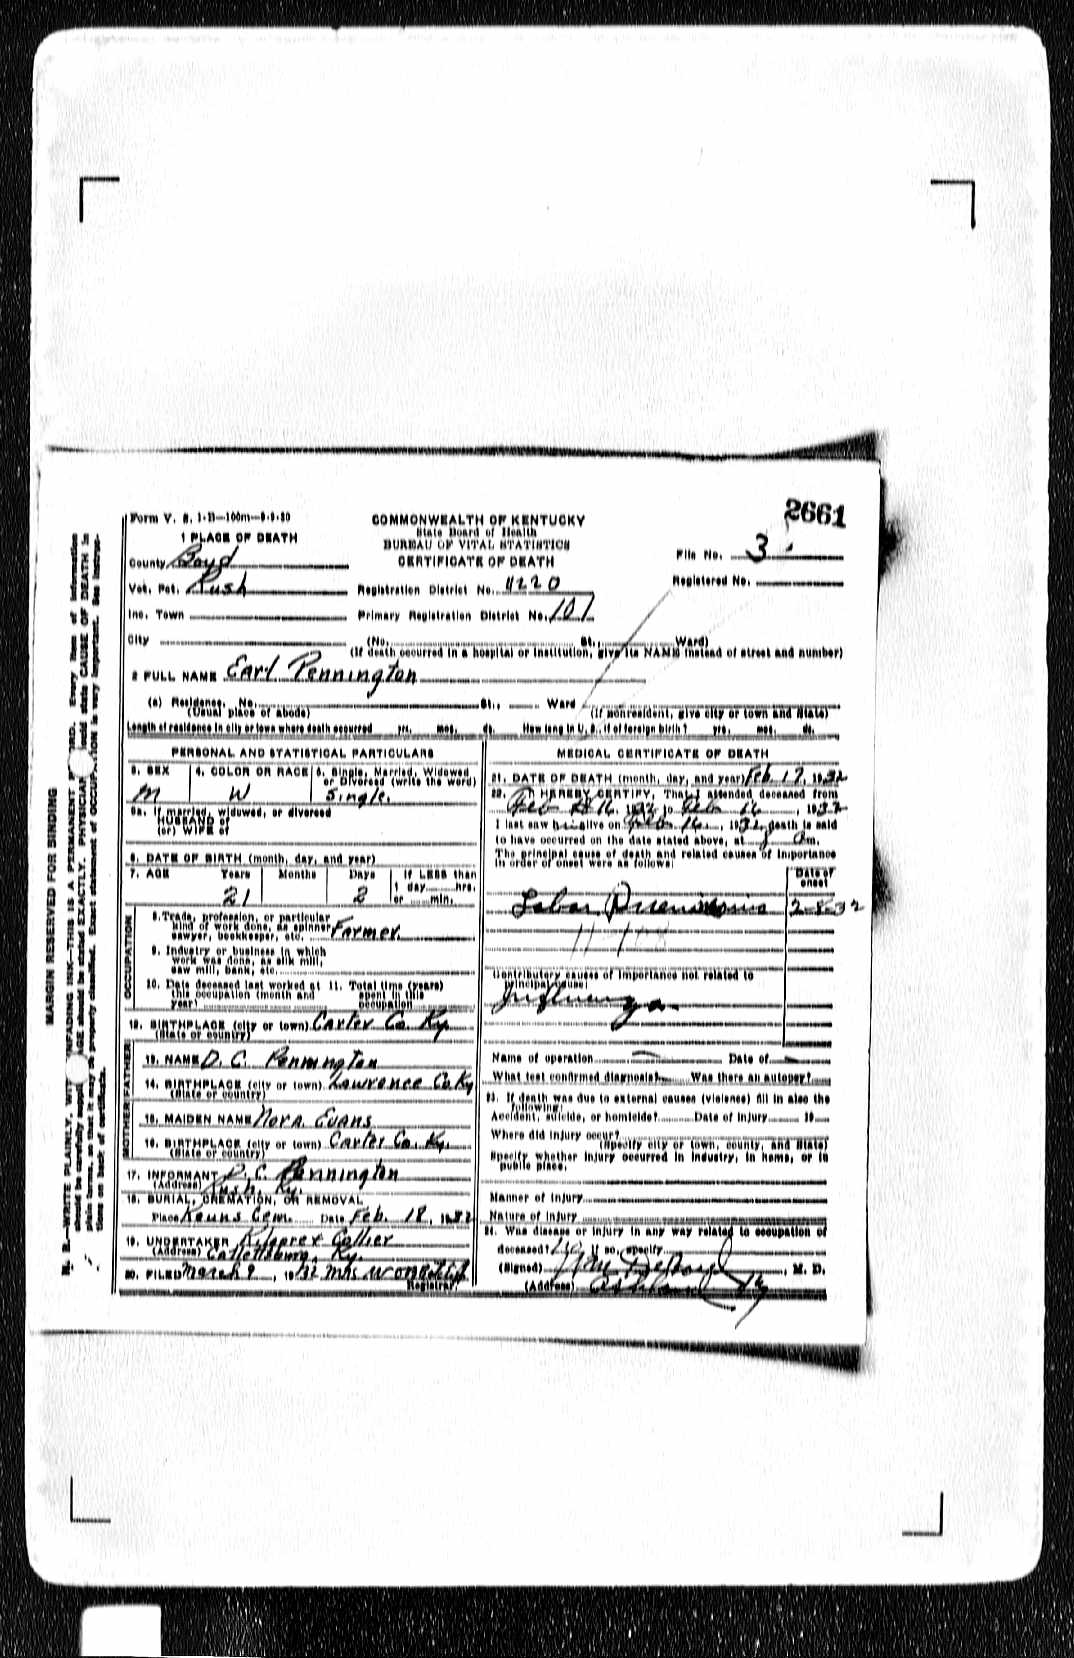 2661
Form V. S. 1-B—100m—9-9-30
COMMONWEALTH OF KENTUCKY
State Board of Health
BUREAU OF VITAL STATISTICS
CERTIFICATE OF DEATH
1 PLACE OF DEATH
County Boyd
File No. 3
Vot. Pct. Rush
Registration District No. 4220
Registered No.
Inc. Town
Primary Registration District No. 101
City
(No. St., Ward)
(If death occurred in a hospital or institution, give its NAME instead of street and number)
2 FULL NAME Earl Pennington
(a) Residence. No. St., Ward
(Usual place of abode)
(If nonresident, give city or town and State)
Length of residence in city or town where death occurred yrs. mos. ds. How long in U. S., if of foreign birth? yrs. mos. ds.
PERSONAL AND STATISTICAL PARTICULARS
3. SEX
M
4. COLOR OR RACE
W
5. Single, Married, Widowed
or Divorced (write the word)
Single.
5a. If married, widowed, or divorced
HUSBAND of
(or) WIFE of
6. DATE OF BIRTH (month, day, and year)
7. AGE Years Months Days If LESS than
1 day hrs.
or min.
21 2
OCCUPATION
8. Trade, profession, or particular
kind of work done, as spinner
sawyer, bookkeeper, etc. Farmer.
9. Industry or business in which
work was done, as silk mill,
saw mill, bank, etc.
10. Date deceased last worked at
this occupation (month and
year)
11. Total time (years)
spent in this
occupation
12. BIRTHPLACE (city or town) Carter Co. Ky.
(State or country)
FATHER
13. NAME D. C. Pennington
14. BIRTHPLACE (city or town) Lawrence Co. Ky
(State or country)
MOTHER
15. MAIDEN NAME Nora. Evans
16. BIRTHPLACE (city or town) Carter Co. Ky.
(State or country)
17. INFORMANT D. C. Pennington
(Address) Rush, Ky.
18. BURIAL, CREMATION, OR REMOVAL
Place Cem. Date Feb. 18, 1932
19. UNDERTAKER Collier
(Address) Catlettsburg, Ky.
20. FILED March 9, 1932 Mrs.
Registrar.
MEDICAL CERTIFICATE OF DEATH
21. DATE OF DEATH (month, day, and year) Feb. 17, 1932
22. I HEREBY CERTIFY, That I attended deceased from
Feb 16, 1932 to Feb 16, 1932
I last saw him alive on Feb 16, 1932 death is said
to have occurred on the date stated above, at m.
The principal cause of death and related causes of importance
in order of onset were as follows:
Date of
onset
Lobar Pneumonia 2-8-32
Contributory causes of importance not related to
principal cause:
Influenza
Name of operation Date of
What test confirmed diagnosis? Was there an autopsy?
23. If death was due to external causes (violence) fill in also the
following:
Accident, suicide, or homicide? Date of injury 19
Where did injury occur?
(Specify city or town, county, and State)
Specify whether injury occurred in industry, in home, or in
public place.
Manner of injury
Nature of injury
24. Was disease or injury in any way related to occupation of
deceased? If so, specify
(Signed) M. D.
(Address) Ashland Ky
MARGIN RESERVED FOR BINDING